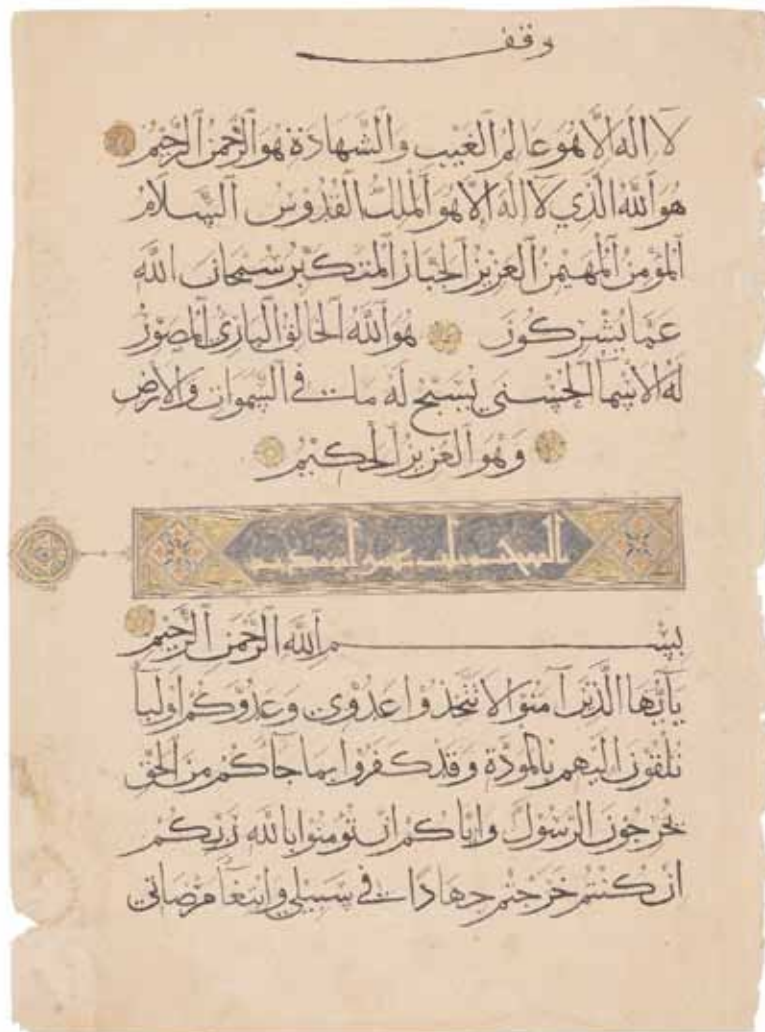 وقف
لا اله الا هو عالم الغيب والشهادة هو الرحمن الرحيم
هو الله الذي لا اله الا هو الملك القدوس السلام
المؤمن المهيمن العزيز الجبار المتكبر سبحان الله
عما يشركون هو الله الخالق البارئ المصور
له الاسما الحسنى يسبح له ما في السموات والارض
وهو العزيز الحكيم
بسم الله الرحمن الرحيم
يا أيها الذين آمنوا لا تتخذوا عدوي وعدوكم اوليا
تلقون اليهم بالمودة وقد كفروا بما جاكم من الحق
يخرجون الرسول واياكم ان تومنوا بالله ربكم
ان كنتم خرجتم جهادا في سبيلي وابتغا مرضاتي